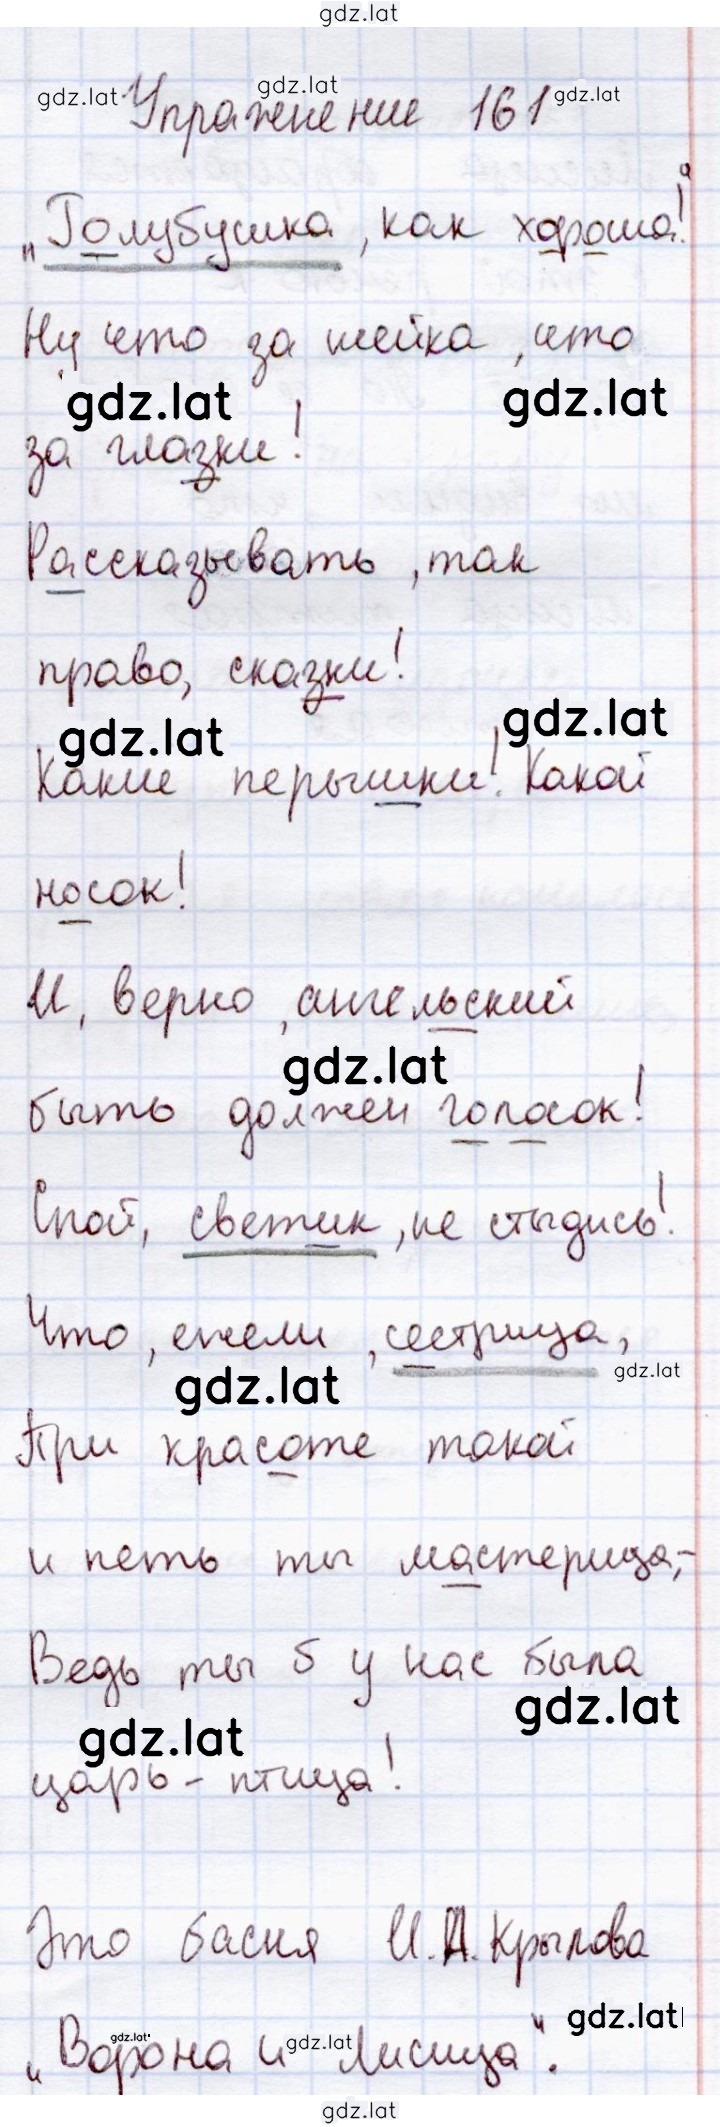 gdz.lat
gdz.lat Упражнение gdz.lat 161 gdz.lat
„Голубушка, как хороша!“
Ну что за шейка, что
gdz.lat gdz.lat
за глазки!
Рассказывать, так
право, сказки!
gdz.lat gdz.lat
Какие перышки! Какой
носок!
И, верно, ангельский
gdz.lat
быть должен голосок!
Спой, светик, не стыдись!
Что, ежели, сестрица,
gdz.lat gdz.lat
При красоте такой
и петь ты мастерица, -
Ведь ты б у нас была
gdz.lat gdz.lat
царь-птица!
Это басня И.А.Крылова
gdz.lat gdz.lat gdz.lat
„Ворона и Лисица“.
gdz.lat